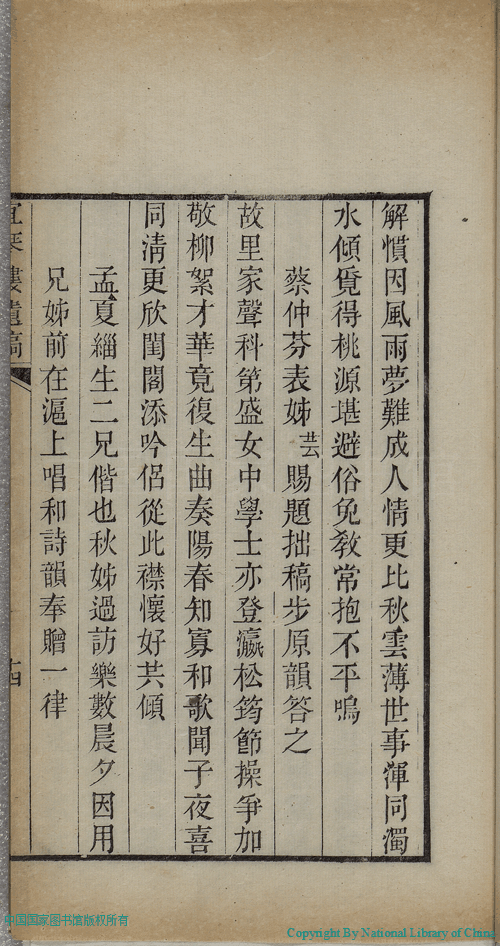 解慣因風雨夢難成人情更比秋雲薄世事渾同濁
水傾覓得桃源堪避俗免教常抱不平鳴
蔡仲芬表姊芸賜題拙稿步原韻答之
故里家聲科第盛女中學士亦登瀛松筠節操爭加
敬柳絮才華竟復生曲奏陽春知寡和歌聞子夜喜
同清更欣閨閣添吟侶從此襟懷好共傾
孟夏緇生二兄偕也秋姊過訪樂數晨夕因用
兄姊前在滬上唱和詩韻奉贈一律
樓遺稿
十四
中国国家图书馆版权所有
Copyright By National Library of China